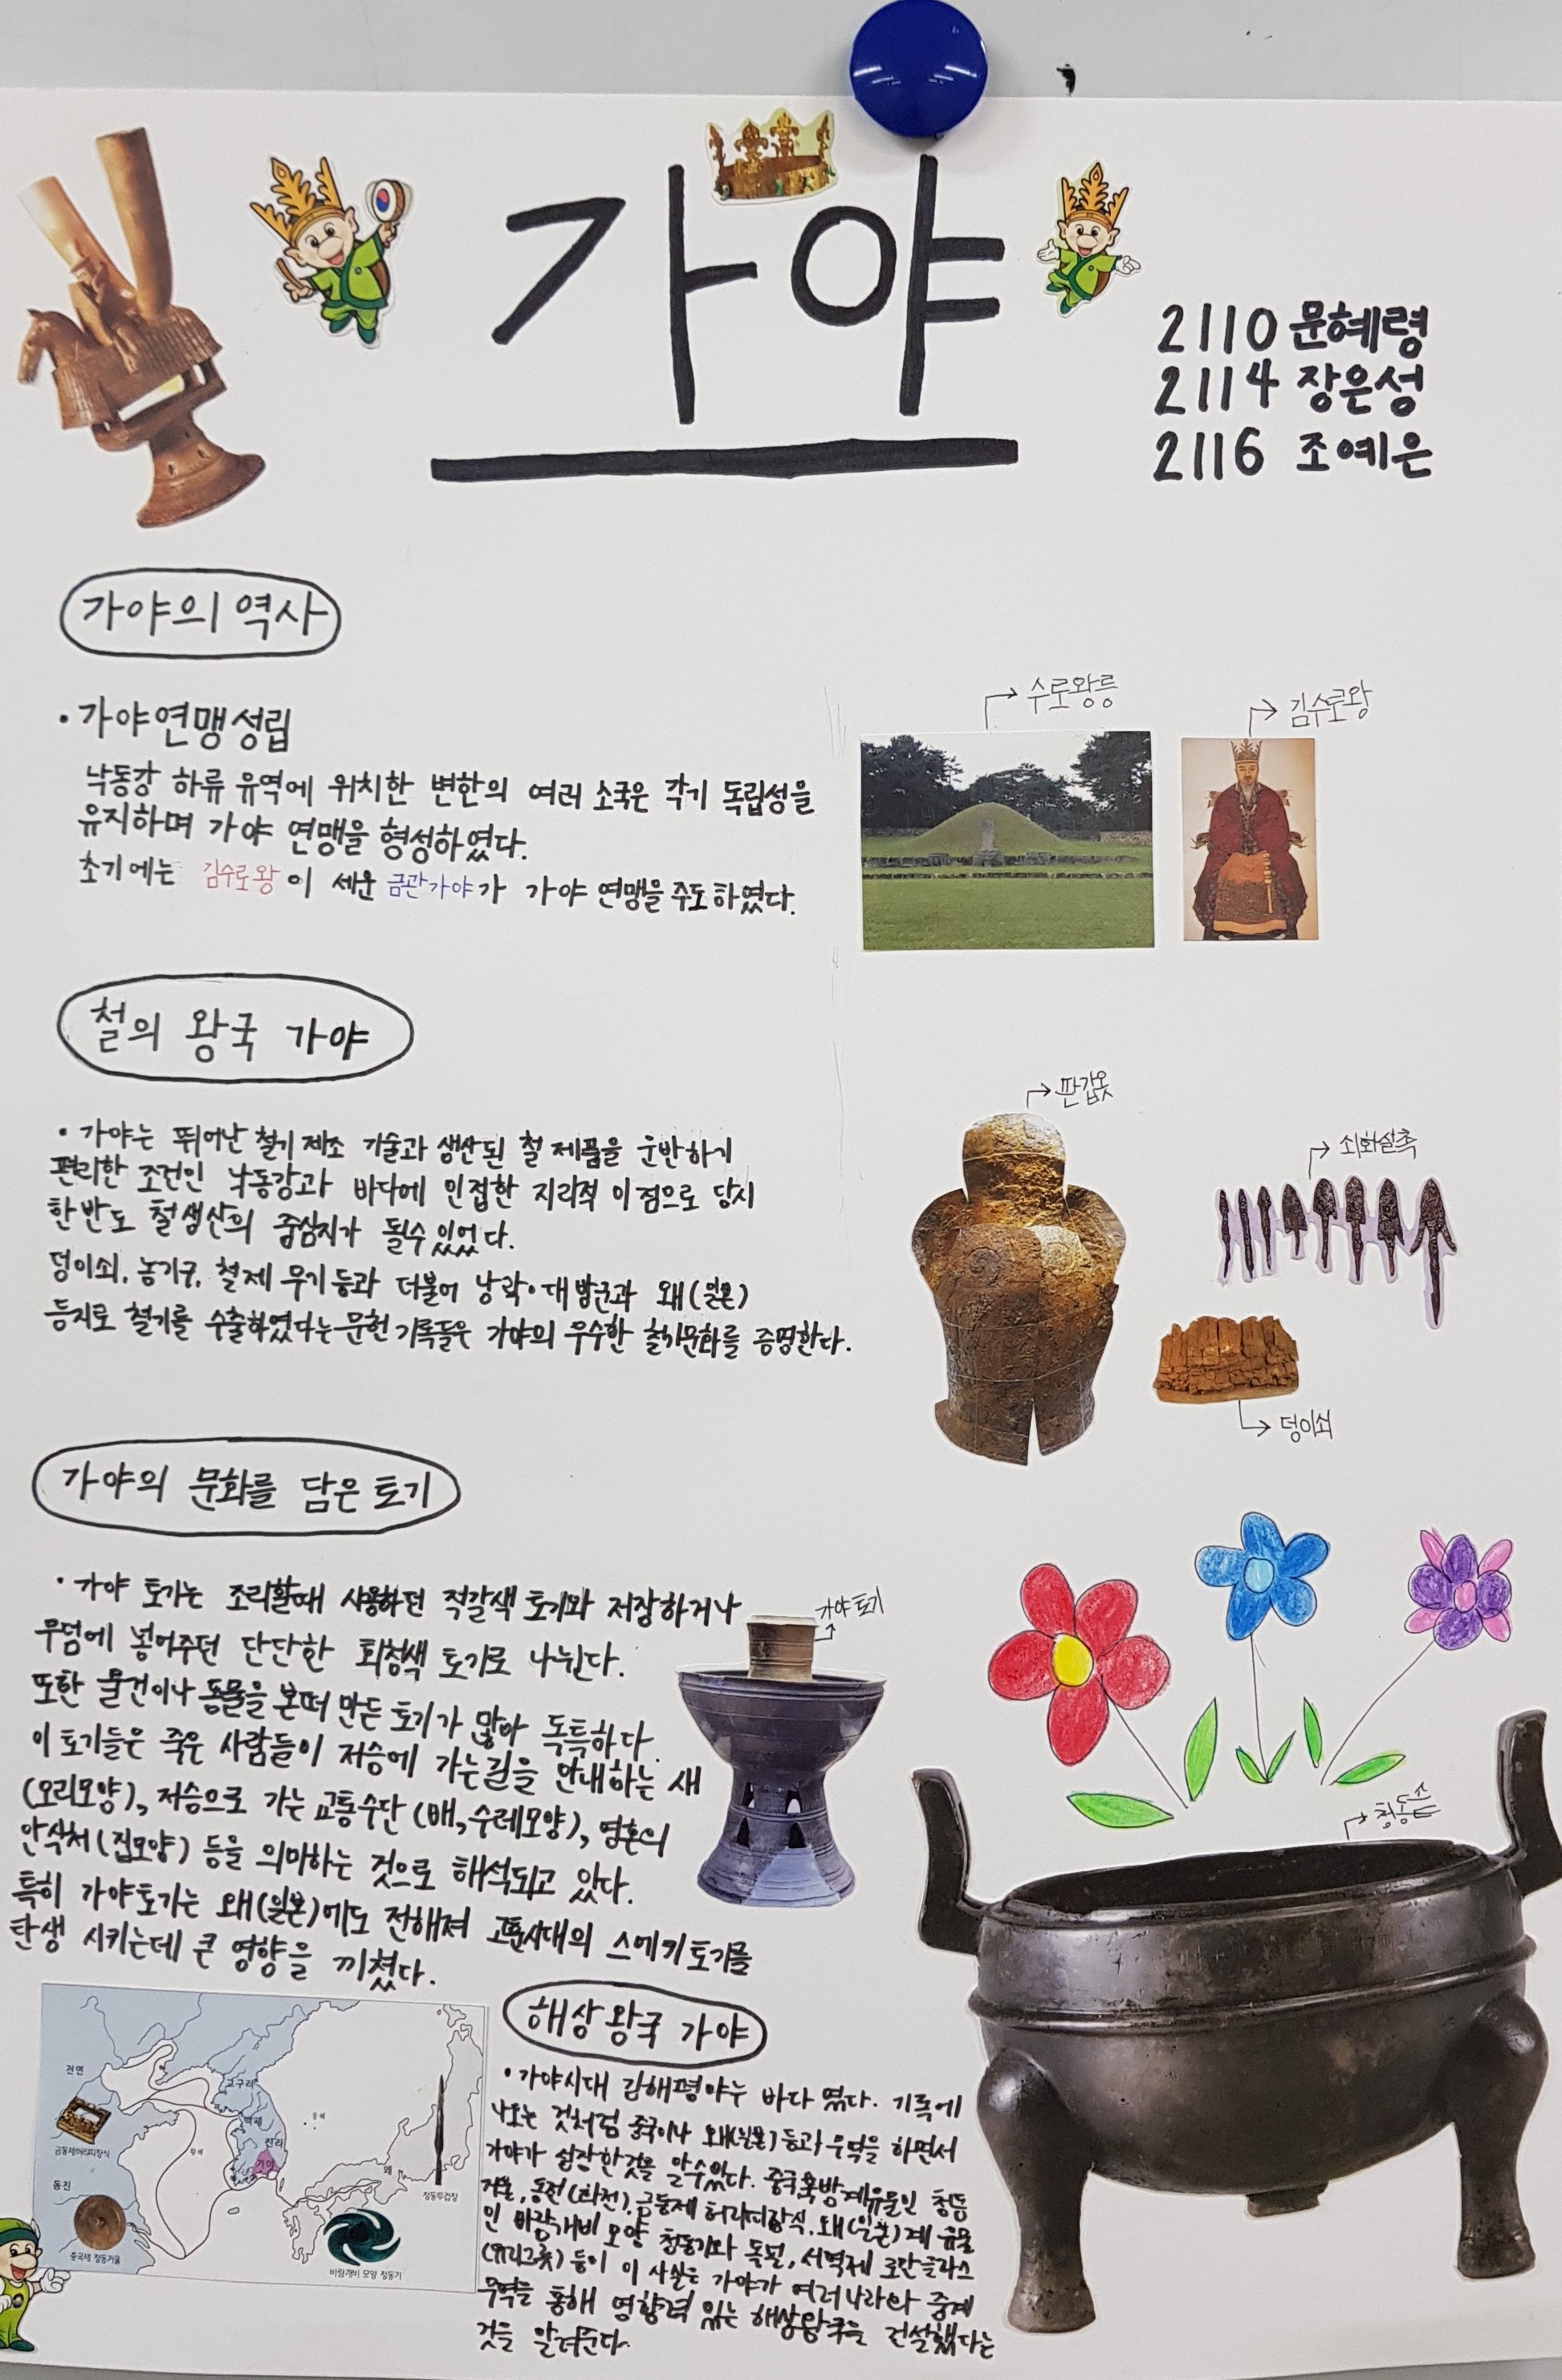 가야
2110 문혜령
2114 장은성
2116 조예은
가야의 역사
· 가야연맹성립
낙동강 하류 유역에 위치한 변한의 여러 소국은 각기 독립성을
유지하며 가야 연맹을 형성하였다.
초기에는 김수로왕이 세운 금관가야가 가야 연맹을 주도하였다.
수로왕릉
김수로왕
철의 왕국 가야
· 가야는 뛰어난 철기 제조 기술과 생산된 철 제품을 운반하기
편리한 조건인 낙동강과 바다에 인접한 지리적 이점으로 당시
한반도 철생산의 중심지가 될수 있었다.
덩이쇠, 농기구, 철제 무기등과 더불어 낭랔·대방군과 왜(일본)
등지로 철기를 수출하였다는 문헌 기록들은 가야의 우수한 철기문화를 증명한다.
판갑옷
쇠화살촉
덩이쇠
가야의 문화를 담은 토기
· 가야 토기는 조리할때 사용하던 적갈색 토기와 저장하거나
무덤에 넣어주던 단단한 회청색 토기로 나뉜다.
또한 물건이나 동물을 본떠 만든 토기가 많아 독특하다.
이 토기들은 죽은 사람들이 저승에 가는길을 안내하는 새
(오리모양), 저승으로 가는 교통수단 (배,수레모양), 영혼의
안식처(집모양) 등을 의미하는 것으로 해석되고 있다.
특히 가야토기는 왜(일본)에도 전해져 고훈시대의 스에키토기를
탄생 시키는데 큰 영향을 끼쳤다.
가야 토기
청동솥
해상왕국 가야
· 가야시대 김해평야는 바다 였다. 기록에
나오는 것처럼 중국이나 왜(일본) 등과 무역을 하면서
가야가 성장한것을 알수있다. 중국북방계유물인 청동
거울, 동전(화천), 금동제 허리띠장식, 왜(일본)계 유물
인 바람개비 모양 청동기와 서역제 로만글라스
(유리그릇) 등이 이 사실은 가야가 여러나라와 중계
무역을 통해 영향력 있는 해상왕국을 건설했다는
것을 알려준다.
전연
금동제허리띠장식
동진
중국제 청동거울
고구려
백제
신라
가야
황해
동해
왜
청동투겁창
바람개비 모양 청동기